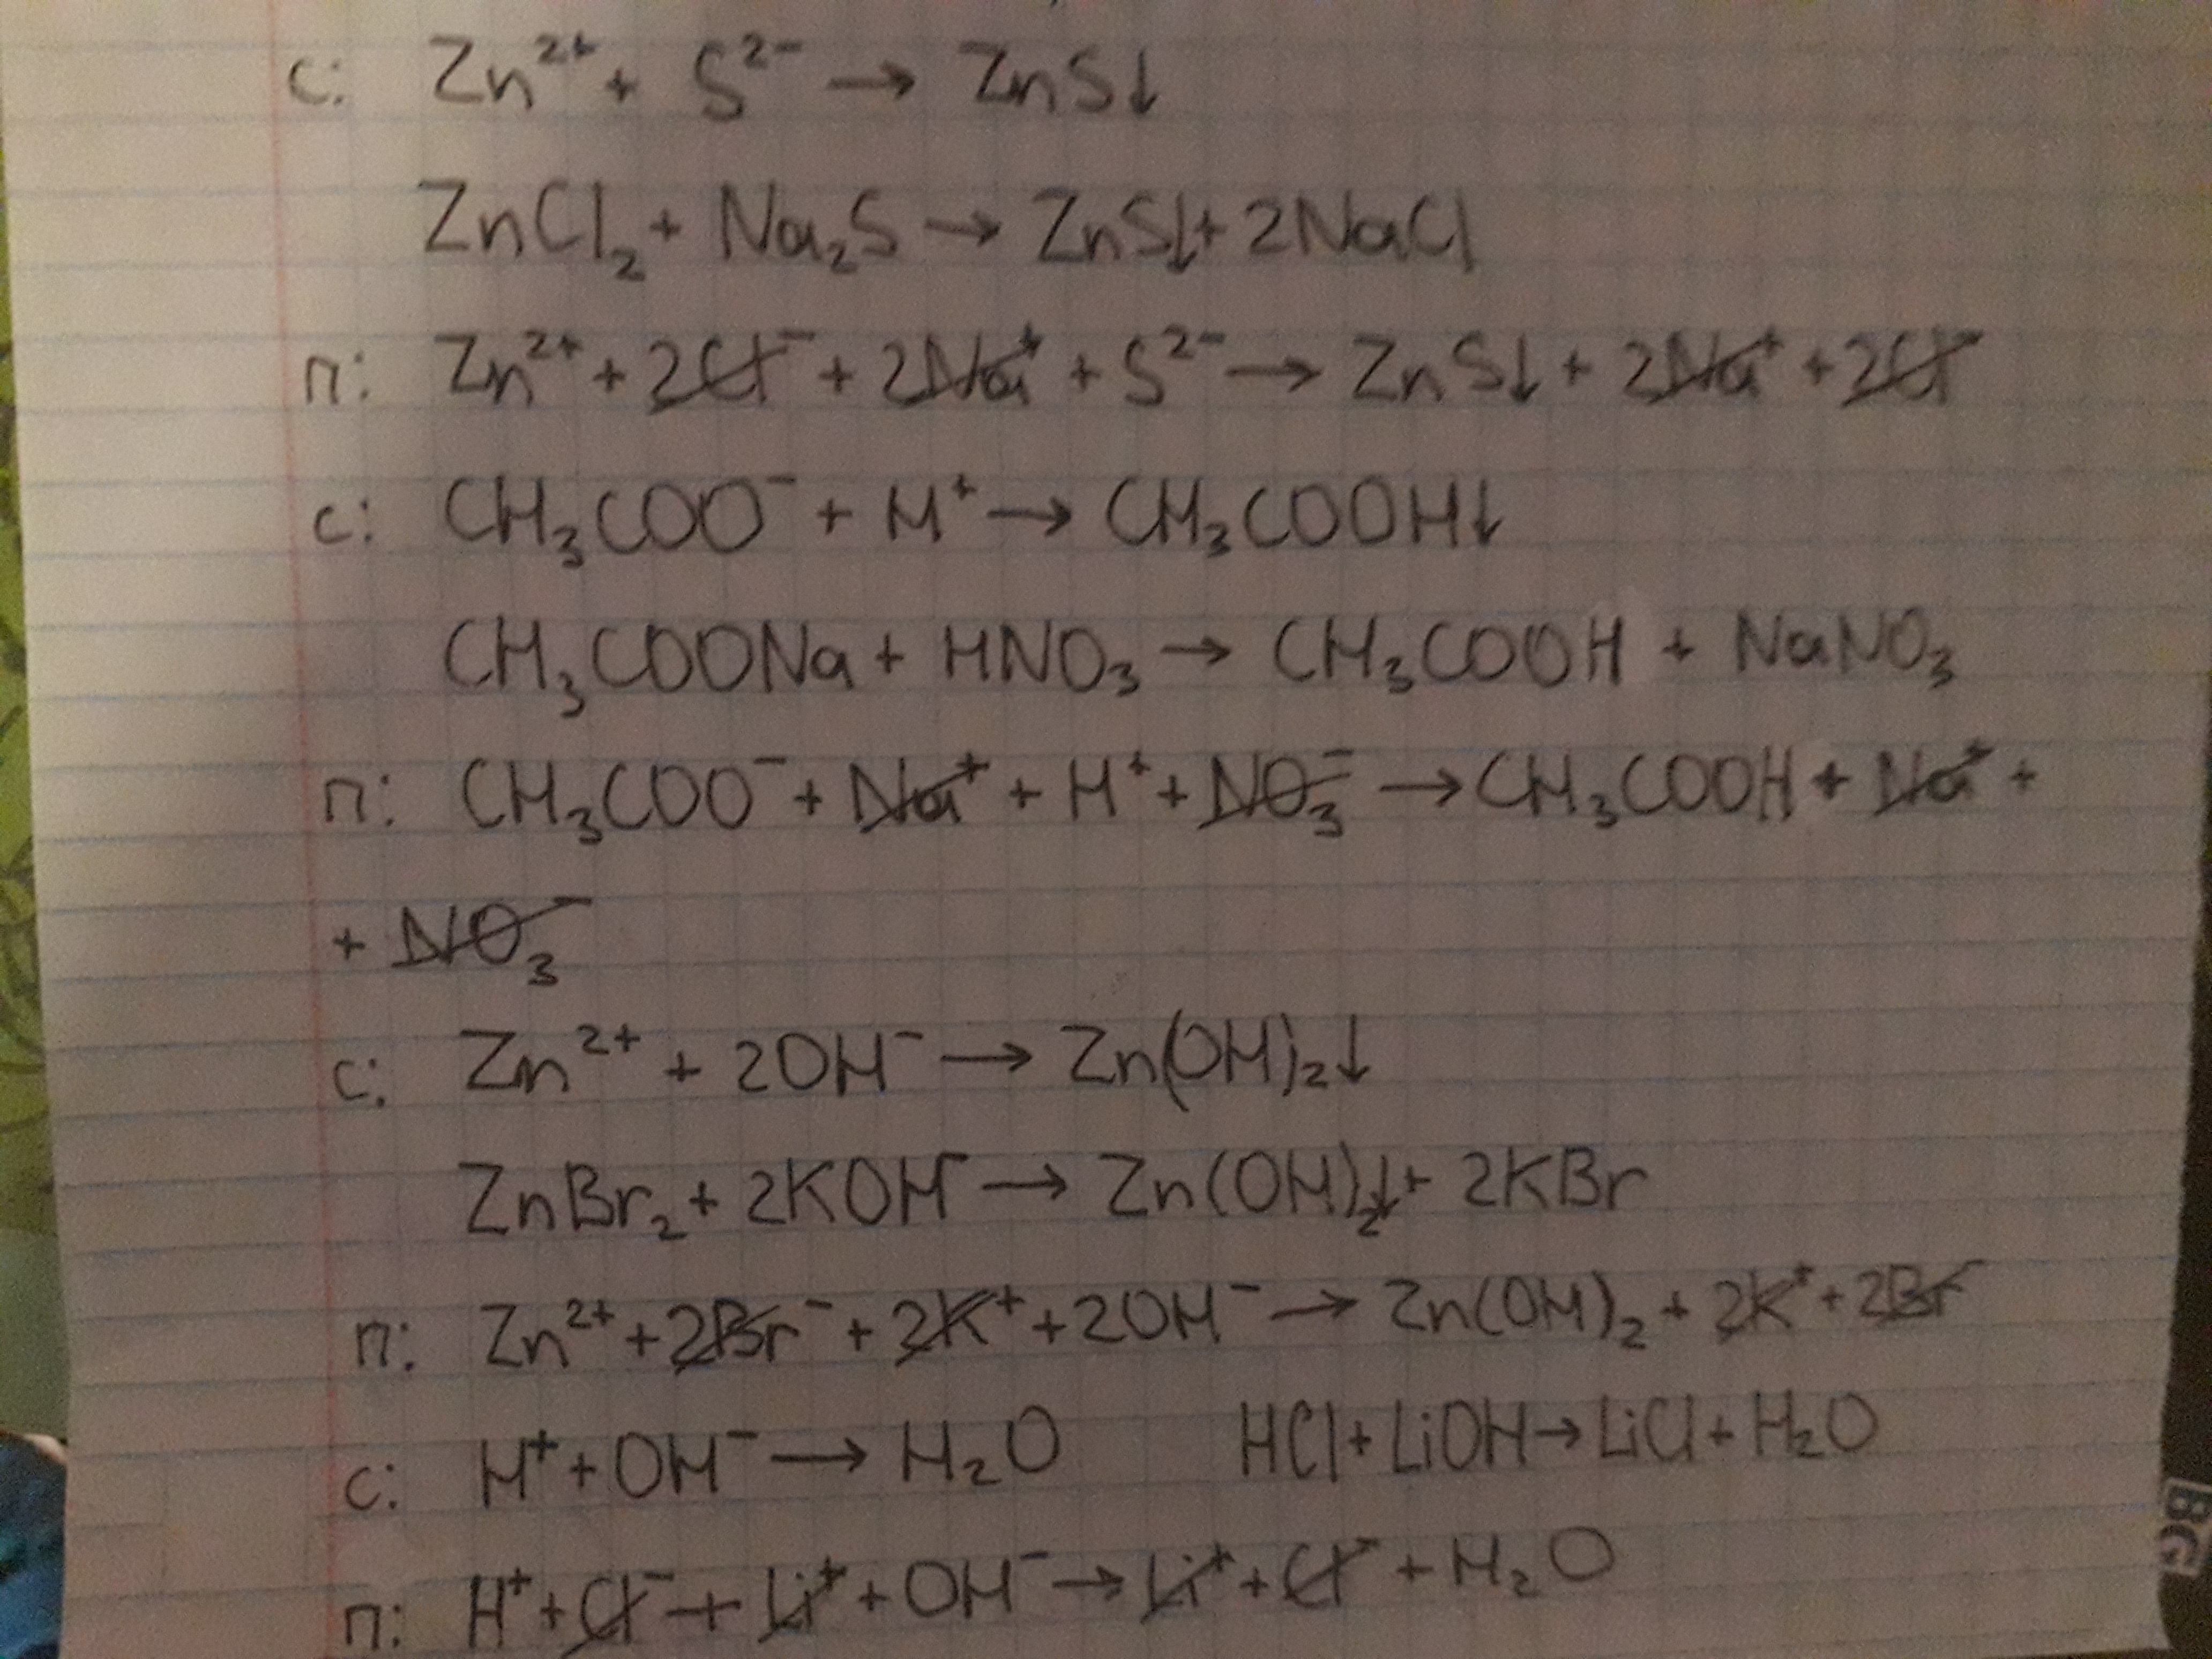 с: Zn²⁺ + S²⁻ → ZnS↓
ZnCl₂ + Na₂S → ZnS↓ + 2NaCl
п: Zn²⁺ + 2Cl⁻ + 2Na⁺ + S²⁻ → ZnS↓ + 2Na⁺ + 2Cl⁻
с: CH₃COO⁻ + H⁺ → CH₃COOH↓
CH₃COONa + HNO₃ → CH₃COOH + NaNO₃
п: CH₃COO⁻ + Na⁺ + H⁺ + NO₃⁻ → CH₃COOH + Na⁺ +
+ NO₃⁻
с: Zn²⁺ + 2OH⁻ → Zn(OH)₂↓
ZnBr₂ + 2KOH → Zn(OH)₂↓ + 2KBr
п: Zn²⁺ + 2Br⁻ + 2K⁺ + 2OH⁻ → Zn(OH)₂ + 2K⁺ + 2Br⁻
с: H⁺ + OH⁻ → H₂O HCl + LiOH → LiCl + H₂O
п: H⁺ + Cl⁻ + Li⁺ + OH⁻ → Li⁺ + Cl⁻ + H₂O
BG